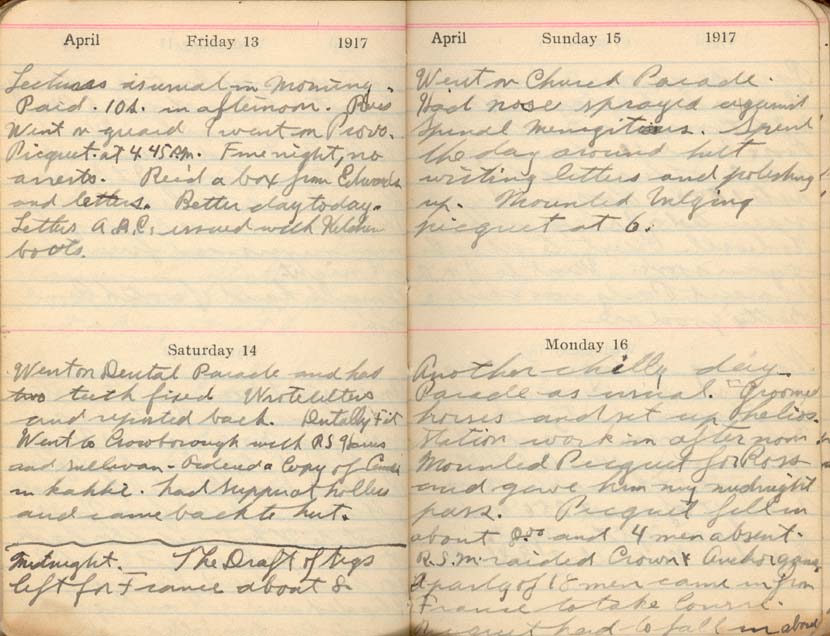 April Friday 13 1917
Lectures as usual in Morning.
Paid. 10s. in afternoon.
Went on guard I went on Provo.
Picquet. at 4.45 P.M. Fine night, no
arrests. Rec'd a box from Edwards
and letters. Better day today.
Letters A.B.C. issued with Kitchen
boots.
Saturday 14
Went on Dental Parade and had
two teeth fixed Wrote letters
and reported back. Dentally Fit
Went to Crowborough with R.S.
and Sullivan - Ordered a Copy of
in kahki. had supper at
and came back to hut.
Midnight. The Draft of Sigs
left for France about 8
April Sunday 15 1917
Went on Church Parade.
Had nose sprayed against
Spinal Menigitius. Spent
the day around hut
writing letters and polishing
up. Mounted
picquet at 6.
Monday 16
Another chilly day.
Parade as usual. Groomed
horses and set up helios.
Station work in afternoon.
Mounted Picquet for Ross
and gave him my midnight
pass. Picquet fell in
about 8.00 and 4 men absent.
R.S.M. raided Crown & Anchor gang.
A party of 18 men came in from
France to take Course.
Picquet had to fall in about